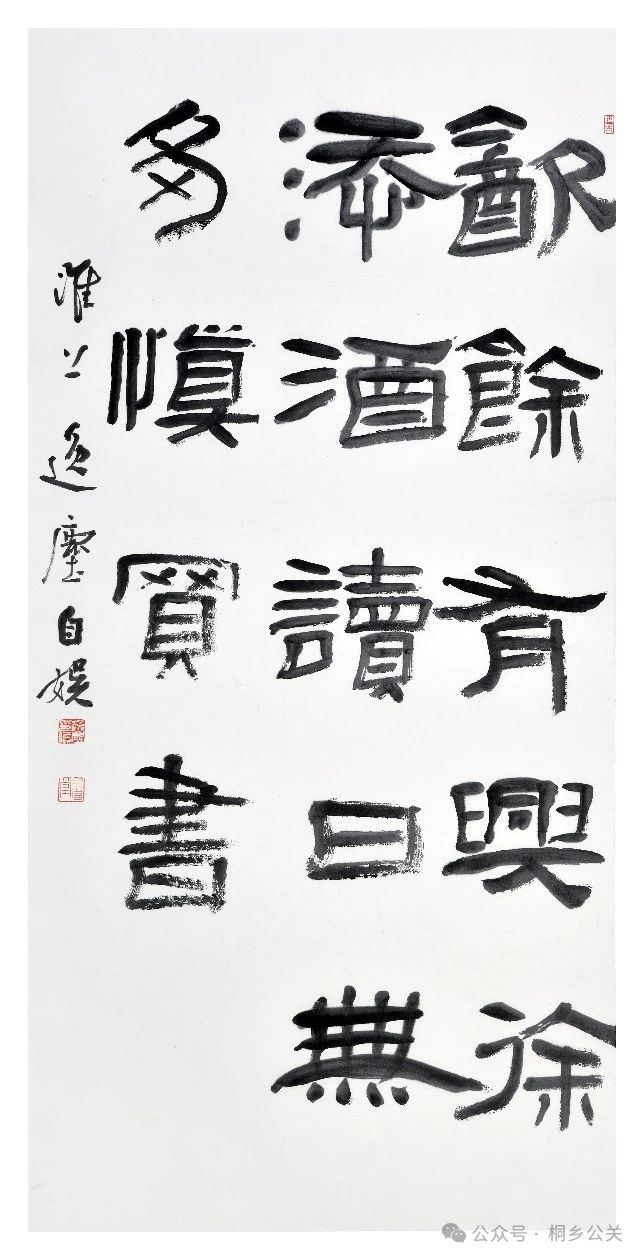 㱃餘有興徐
添酒讀日無
多慎買書
淮上逸塵自娱
公众号 · 桐乡公关